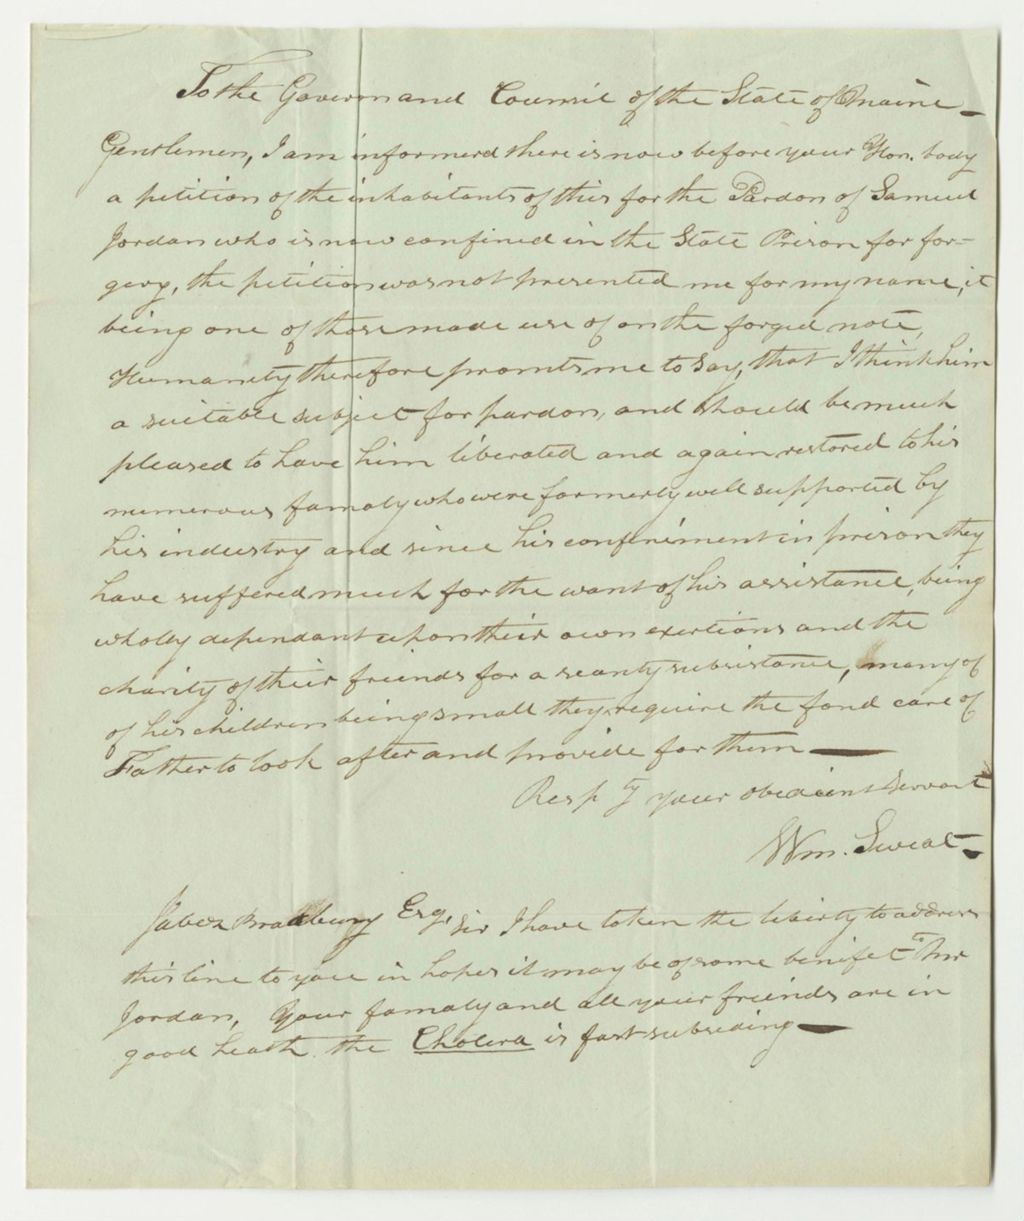 To the Governor and Council of the State of Maine
Gentlemen, I am informerd there is now before your Hon. body
a petition of the inhabitants of this for the Pardon of Samuel
Jordan who is now confined in the State Prison for for=
gery, the petition was not presented me for my name, it
being one of those made use of on the forged note,
Humanity therefore promts me to say, that I think him
a suitable subject for pardon, and should be much
pleased to have him liberated and again restored to his
numerous famaly who were formerly well supported by
his industry and since his confinement in prison they
have suffered much for the want of his assistance, being
wholy dependant upon their own exertions and the
charity of their friends for a scanty subsistance, many of
of his children being small they require the fond care of
Father to look after and provide for them —
Respty your obedient Servant
Wm. Sweat
Jabez Bradbury Esq, sir I have taken the liberty to address
this line to you in hopes it may be of some benifet to Mr
Jordan, Your famaly and all your friends are in
good heath. the Cholera is fast subsiding —